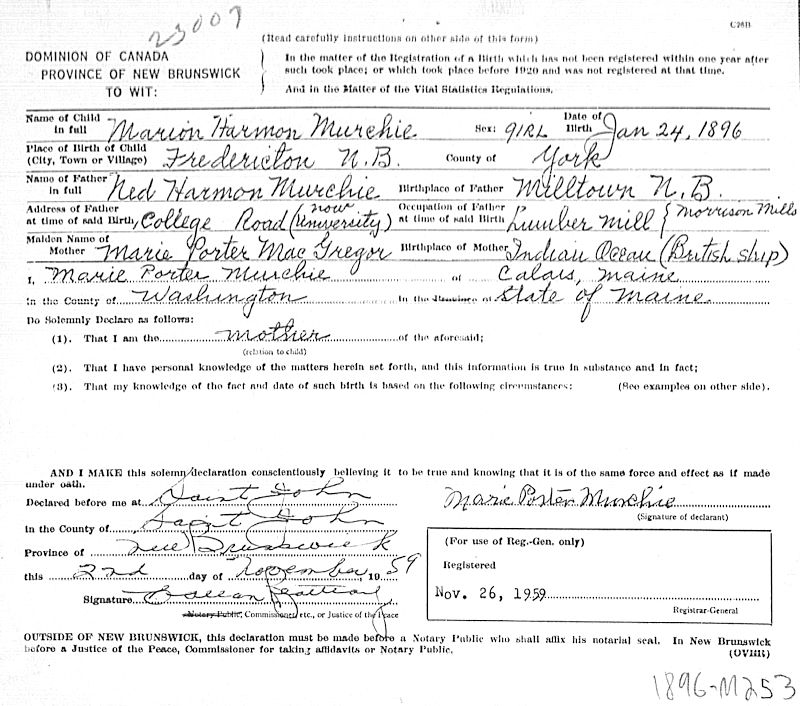 23007
C26B
(Read carefully instructions on other side of this form)
DOMINION OF CANADA
PROVINCE OF NEW BRUNSWICK
TO WIT:
In the matter of the Registration of a Birth which has not been registered within one year after
such took place; or which took place before 1920 and was not registered at that time.
And in the Matter of the Vital Statistics Regulations.
Name of Child in full Marion Harmon Murchie Sex: GIRL Date of Birth Jan 24, 1896
Place of Birth of Child (City, Town or Village) Fredericton N.B. County of York
Name of Father in full Ned Harmon Murchie Birthplace of Father Milltown N.B.
Address of Father at time of said Birth, College Road (now University) Occupation of Father at time of said Birth Lumber Mill { Morrison Mills
Maiden Name of Mother Marie Porter MacGregor Birthplace of Mother Indian Ocean (British ship)
I, Marie Porter Murchie of Calais, Maine
in the County of Washington in the Province of State of Maine
Do Solemnly Declare as follows:
(1). That I am the mother of the aforesaid;
(relation to child)
(2). That I have personal knowledge of the matters herein set forth, and this information is true in substance and in fact;
(3). That my knowledge of the fact and date of such birth is based on the following circumstances: (See examples on other side).
AND I MAKE this solemn declaration conscientiously believing it to be true and knowing that it is of the same force and effect as if made
under oath.
Declared before me at Saint John
in the County of Saint John
Province of New Brunswick
this 2nd day of November, 1959
Signature
Notary Public, Commissioner etc., or Justice of the Peace
Marie Porter Murchie
(Signature of declarant)
(For use of Reg.-Gen. only)
Registered
Nov. 26, 1959
Registrar-General
OUTSIDE OF NEW BRUNSWICK, this declaration must be made before a Notary Public who shall affix his notarial seal. In New Brunswick
before a Justice of the Peace, Commissioner for taking affidavits or Notary Public.
(OVER)
1896-M253